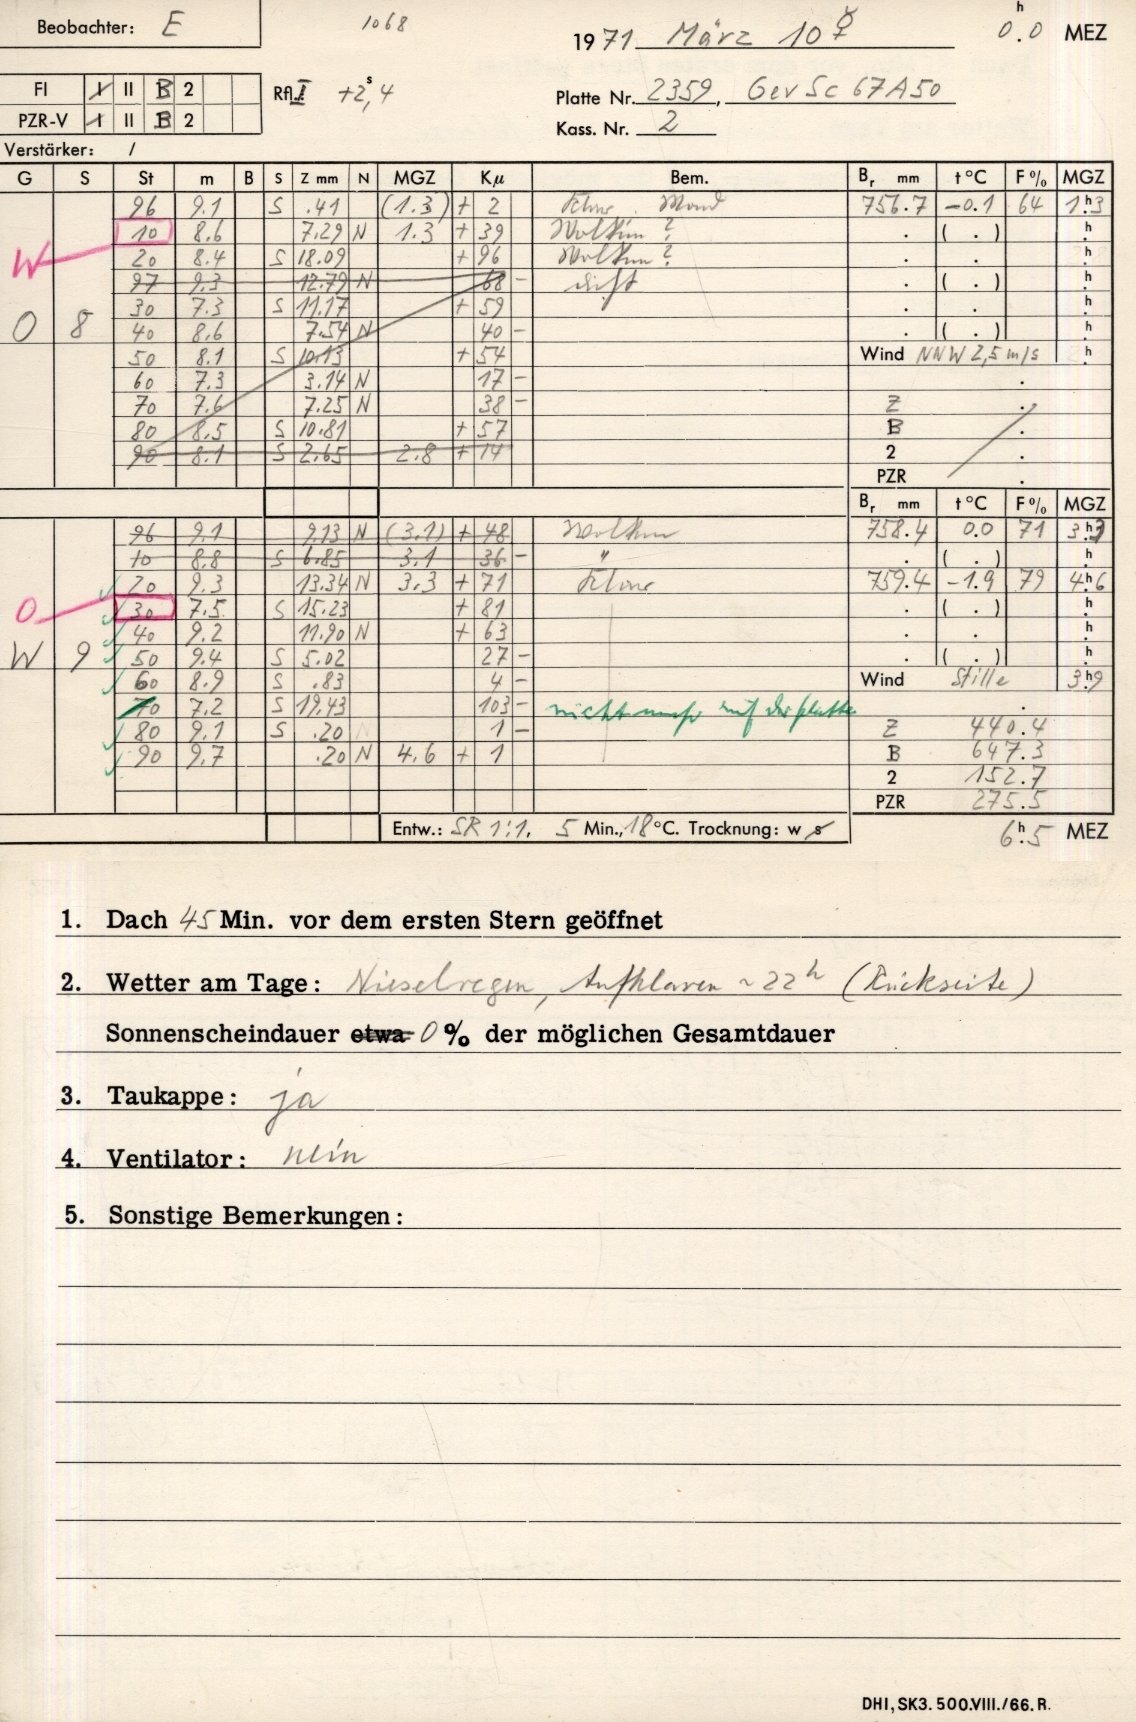 Beobachter: E 1068 1971 März 10 ☿ 0h.0 MEZ
FI I II B 2 RflI +2s,4 Platte Nr. 2359, GevSc 67A50
PZR-V I II B 2 Kass. Nr. 2
Verstärker: /
G S St m B S Z mm N MGZ Kμ Bem. Br mm t°C F% MGZ
96 9.1 S .41 (1.3) + 2 Mond 756.7 -0.1 64 1h.3
W 10 8.6 7.29 N 1.3 + 39 Wolken? . ( . ) h
20 8.4 S 18.09 + 96 Wolken? . . h
97 9.3 12.79 N 68 - . ( . ) h
30 7.3 S 11.17 + 59 . . h
O 8 40 8.6 7.54 N 40 - . ( . ) h
50 8.1 S 10.13 + 54 Wind NNW 2,5 m/s h
60 7.3 3.14 N 17 - .
70 7.6 7.25 N 38 - Z .
80 8.5 S 10.81 + 57 B .
90 8.1 S 2.65 2.8 + 14 2 .
PZR .
Br mm t°C F% MGZ
96 9.1 9.13 N (3.1) + 48 Wolken 758.4 0.0 71 3h.3
10 8.8 S 6.85 3.1 36 - " . ( . ) h
20 9.3 13.34 N 3.3 + 71 759.4 -1.9 79 4h.6
O 30 7.5 S 15.23 + 81 . ( . ) h
40 9.2 11.90 N + 63 . . h
W 9 50 9.4 S 5.02 27 - . ( . ) h
60 8.9 S .83 4 - Wind Stille 3h.9
70 7.2 S 19.43 103 - nicht mehr auf der Platte .
80 9.1 S .20 1 - Z 440.4
90 9.7 .20 N 4.6 + 1 B 647.3
2 152.7
PZR 275.5
Entw.: SR 1:1, 5 Min., 18 °C. Trocknung: w s 6h.5 MEZ
1. Dach 45 Min. vor dem ersten Stern geöffnet
2. Wetter am Tage: Nieselregen, Aufklaren ~22h (Rückseite)
Sonnenscheindauer etwa 0 % der möglichen Gesamtdauer
3. Taukappe: ja
4. Ventilator: nein
5. Sonstige Bemerkungen:
DHI, SK3. 500.VIII./66. R.